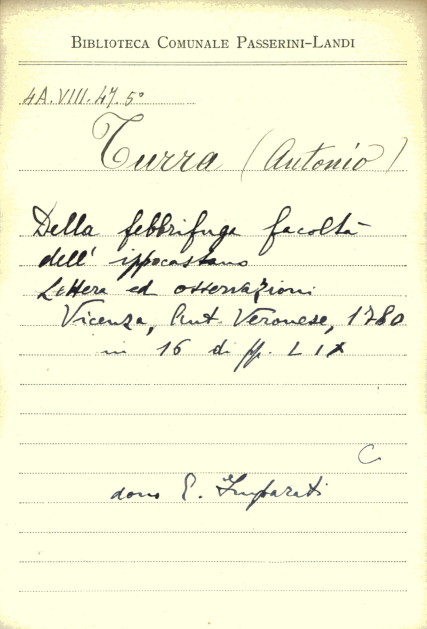 BIBLIOTECA COMUNALE PASSERINI-LANDI
4A.VIII.47.5°
Turra (Antonio)
Della febbrifuga facoltà
dell' ippocastano
Lettera ed osservazioni
Vicenza, Ant. Veronese, 1780
in 16 di pp. LIX
C
dono E. Imparati